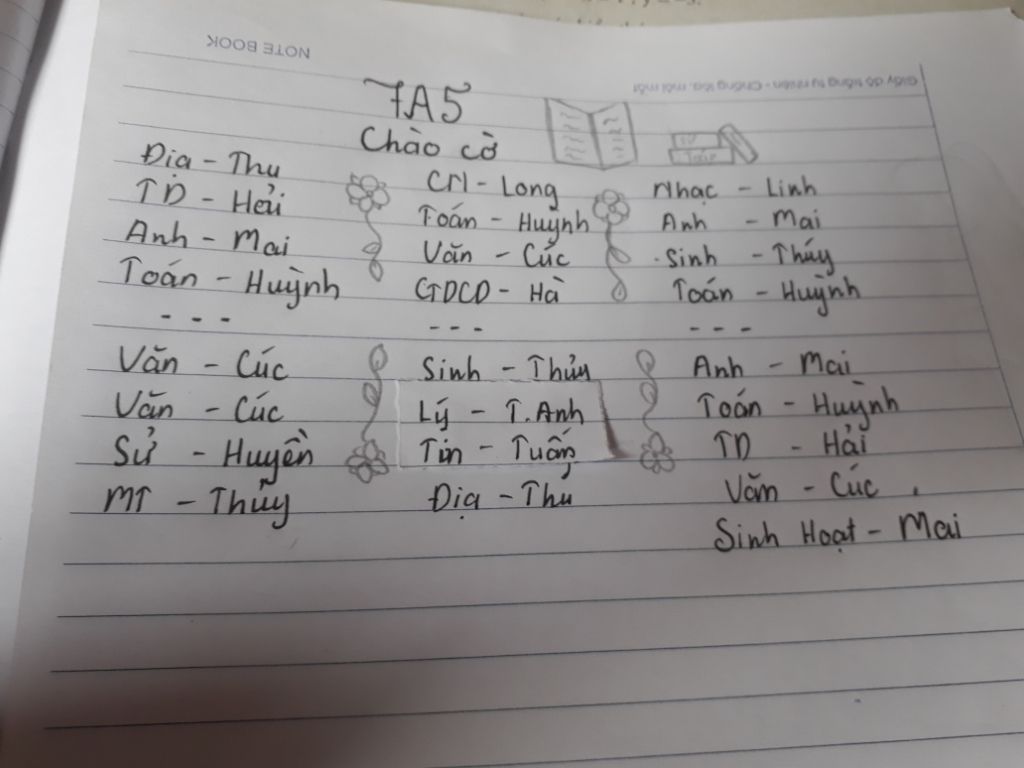 NOTE BOOK
Giấy độ trắng tự nhiên - Chống lóa, mỏi mắt
7A5
Chào cờ
Địa - Thu
TD - Hải
Anh - Mai
Toán - Huỳnh
- - -
Văn - Cúc
Văn - Cúc
Sử - Huyền
MT - Thủy
CN - Long
Toán - Huỳnh
Văn - Cúc
GDCD - Hà
- - -
Sinh - Thủy
Lý - T. Anh
Tin - Tuấn
Địa - Thu
Nhạc - Linh
Anh - Mai
Sinh - Thúy
Toán - Huỳnh
- - -
Anh - Mai
Toán - Huỳnh
TD - Hải
Văn - Cúc
Sinh Hoạt - Mai